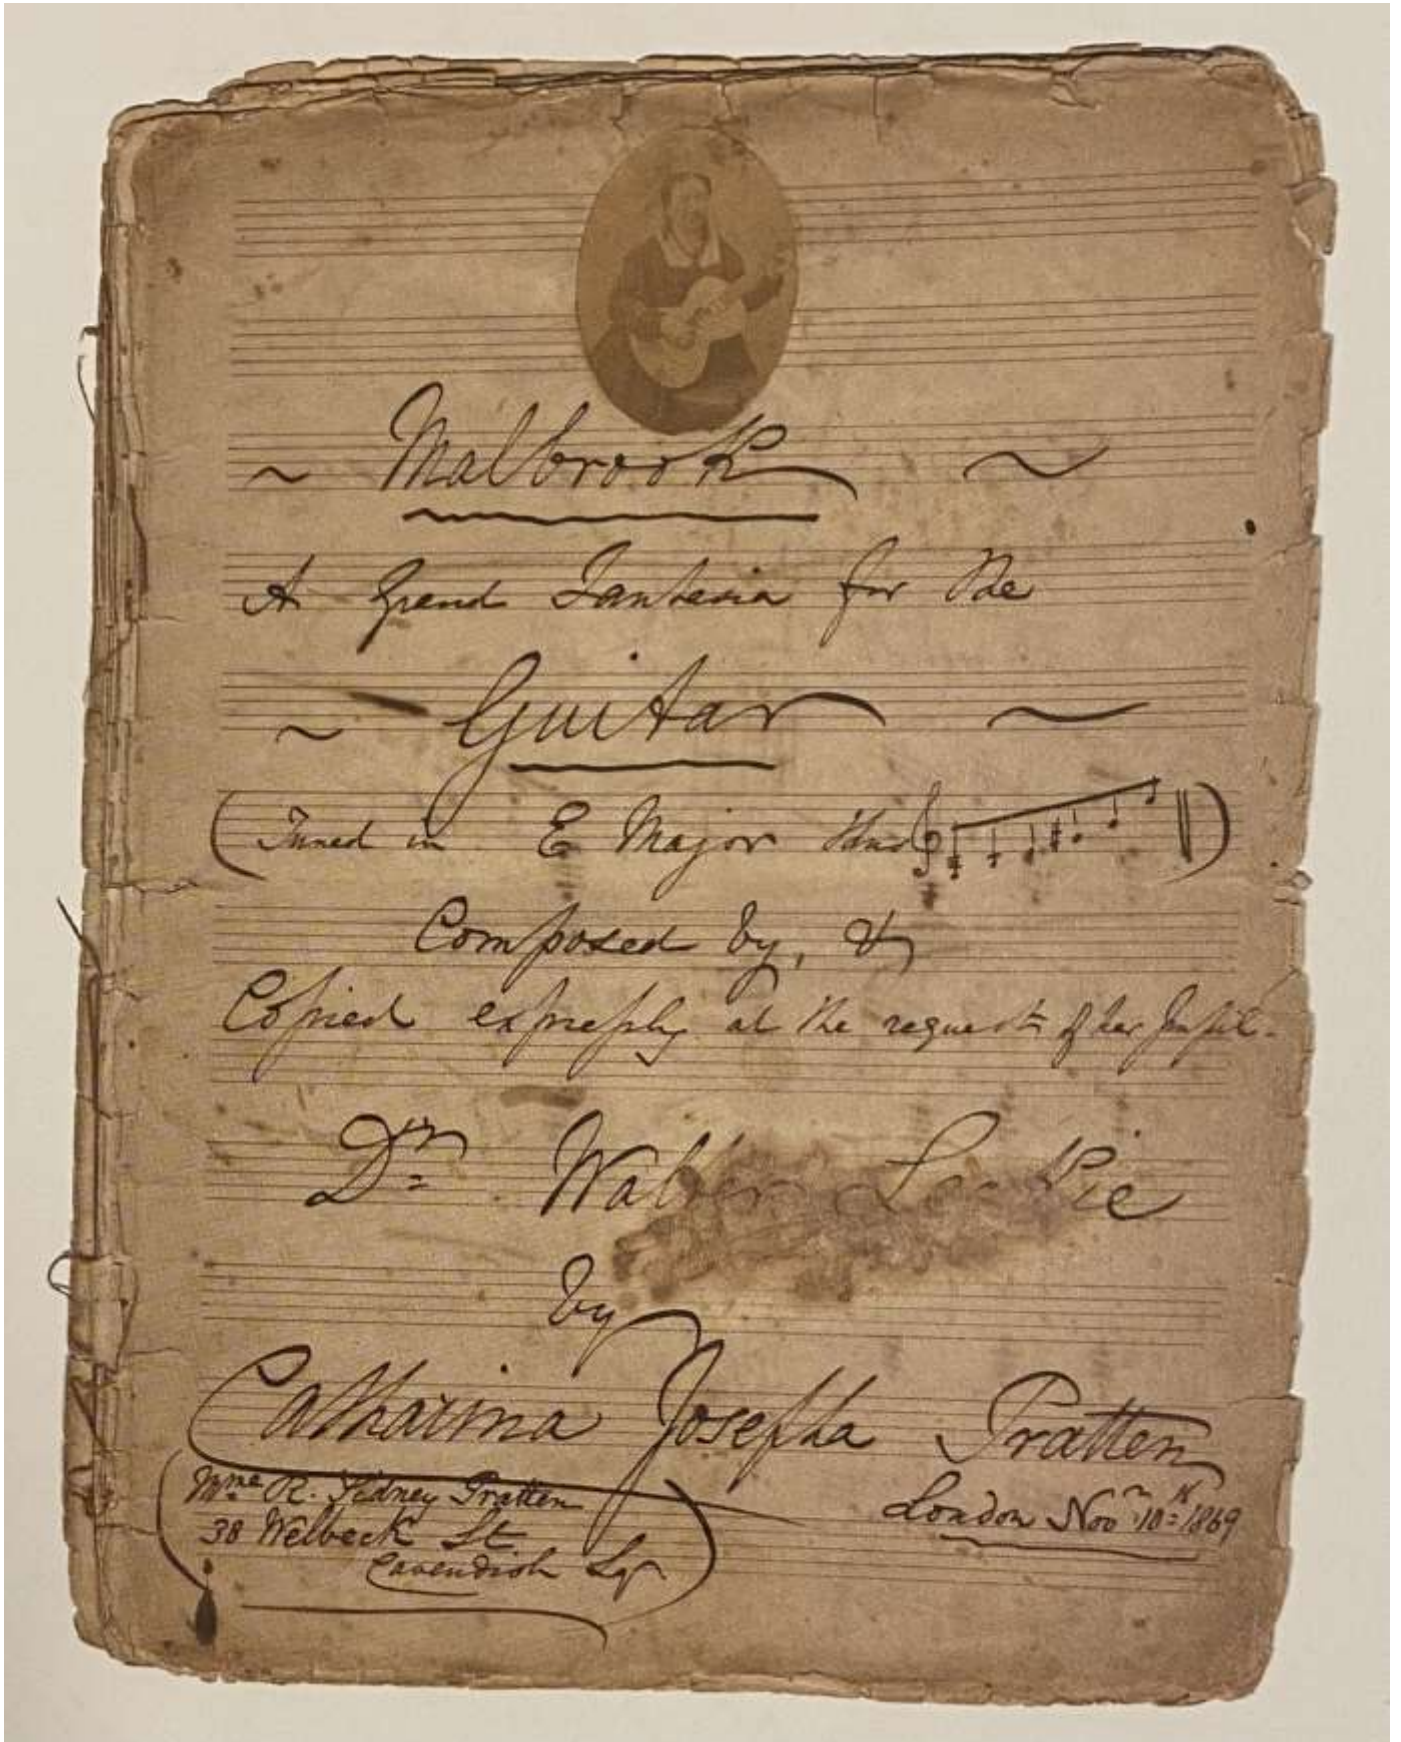 ~ Malbrook ~
A Grand Fantasia for the
~ Guitar ~
(Tuned in E Major thus )
Composed by, &
Copied expressly at the request of her Pupil.
Dr. Walter Leckie
by
Catharina Josepha Pratten
Mme R. Sidney Pratten
38 Welbeck St
Cavendish Sqr
London Novr 10th 1869